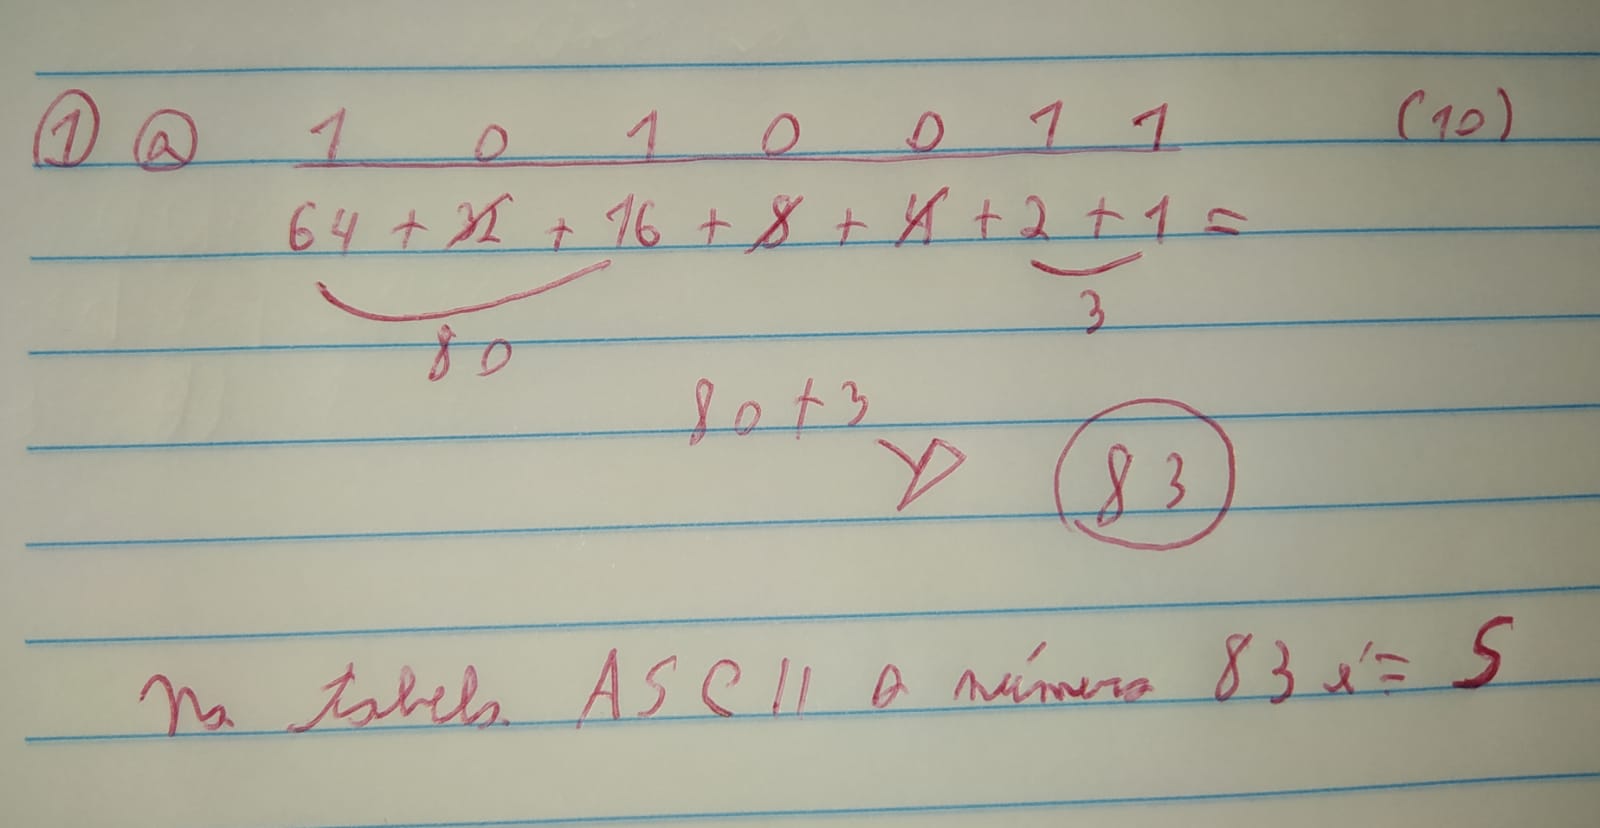 ① ⓐ 1 0 1 0 0 1 1 (10)
64 + 32 + 16 + 8 + 4 + 2 + 1 =
80 3
80+3
83
Na tabela ASCII o número 83 é = S